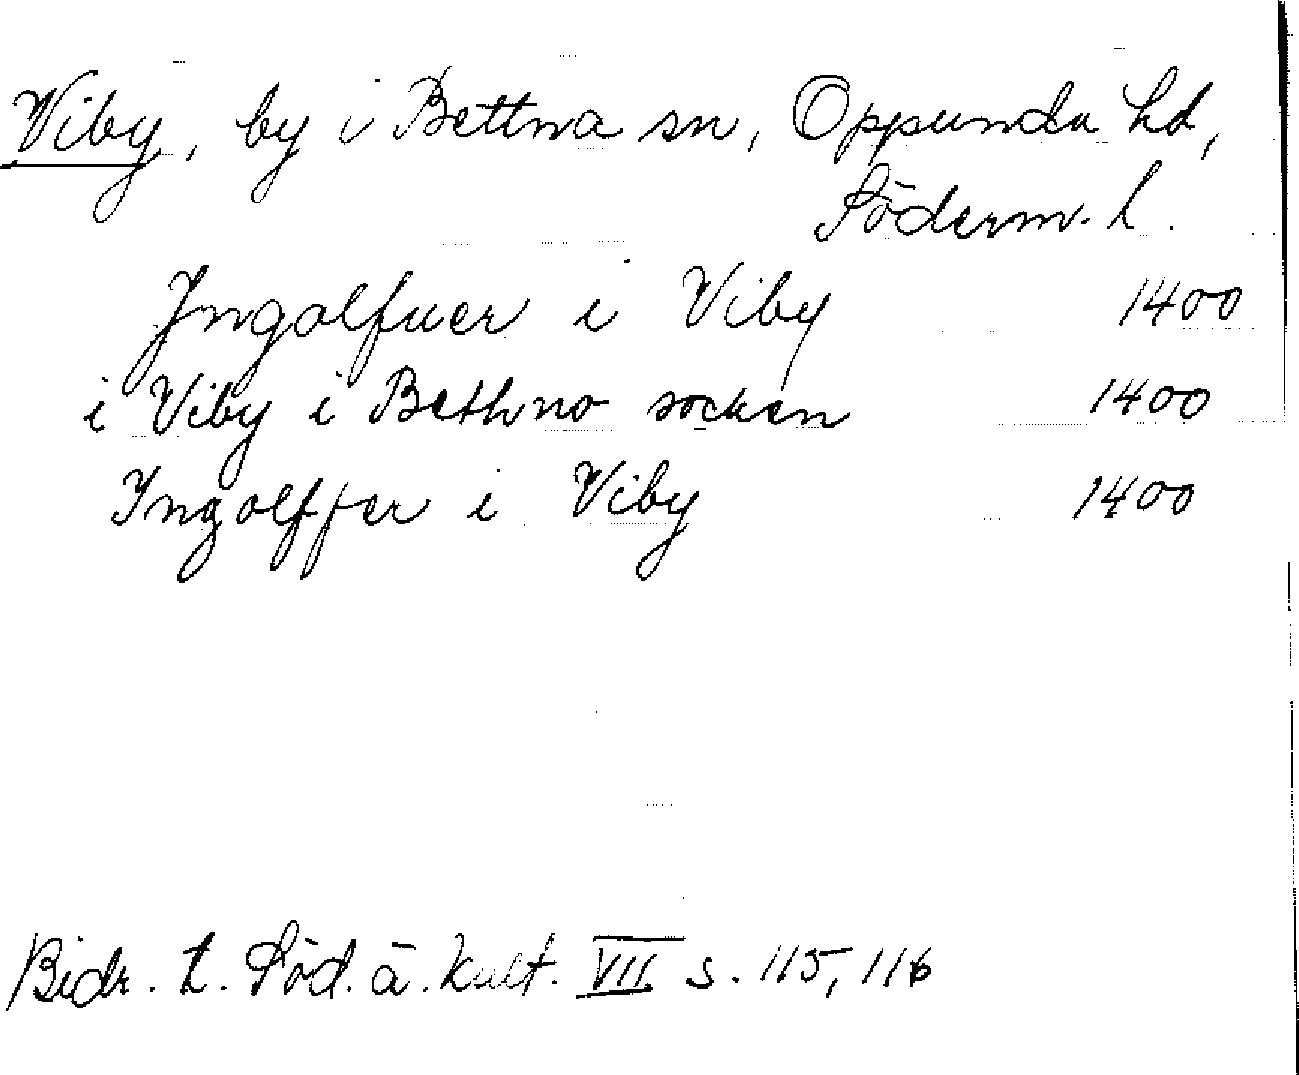 Viby, by i Bettna sn, Oppunda hd,
Söderm. l.
Ingolfuer i Viby 1400
i Viby i Bethno socken 1400
Ingolffer i Viby 1400
Bidr. t. Söd. ä. kult. VII s. 115, 116